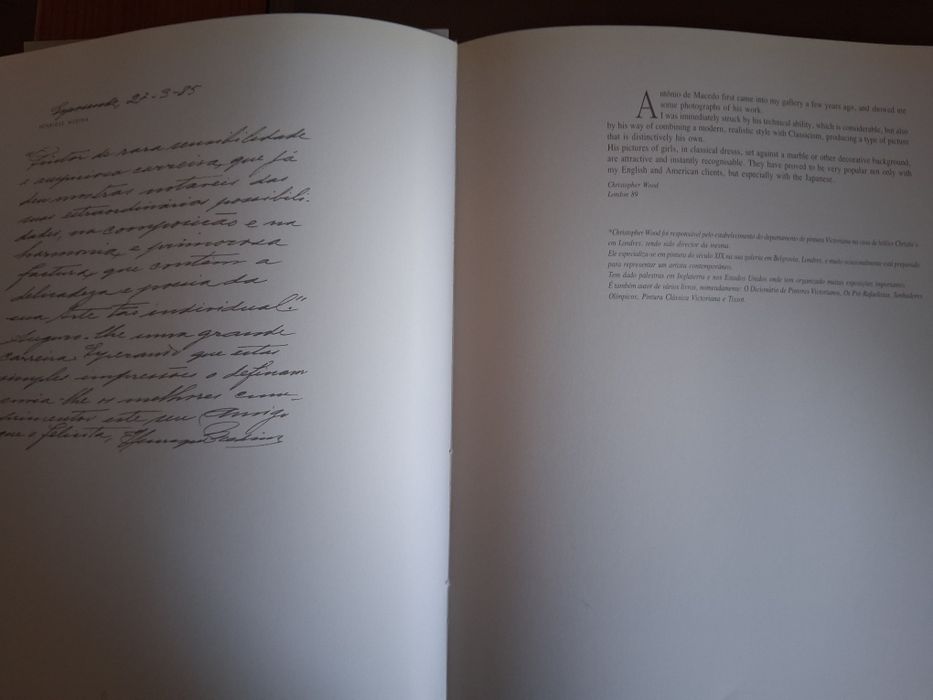 Esposende, 27-3-85
HENRIQUE MEDINA
"Pintor de rara sensibilidade
e auspiciosa carreira, que já
deu mostras notaveis das
suas extraordinárias possibili-
dades, na composição e na
harmonia e primorosa
factura, que contêm a
delicadeza e poesia da
sua Arte tão individual."
Auguro-lhe uma grande
carreira. Esperando que estas
simples impressões o definam
envia-lhe os melhores cum-
primentos este seu Amigo
que o felicita, Henrique Medina
António de Macedo first came into my gallery a few years ago, and showed me
some photographs of his work.
I was immediately struck by his technical ability, which is considerable, but also
by his way of combining a modern, realistic style with Classicism, producing a type of picture
that is distinctively his own.
His pictures of girls, in classical dresss, set against a marble or other decorative background,
are attractive and instantly recognisable. They have proved to be very popular not only with
my English and American clients, but especially with the Japanese.
Christopher Wood
London 89
*Christopher Wood foi responsável pelo estabelecimento do departamento de pintura Victoriana na casa de leilões Christie's
em Londres, tendo sido director da mesma.
Ele especializa-se em pintura do século XIX na sua galeria em Belgravia, Londres, e muito ocasionalmente está preparado
para representar um artista contemporâneo.
Tem dado palestras em Inglaterra e nos Estados Unidos onde tem organizado muitas exposições importantes.
É também autor de vários livros, nomeadamente: O Dicionário de Pintores Victorianos, Os Pré-Rafaelistas, Sonhadores
Olímpicos, Pintura Clássica Victoriana e Tissot.